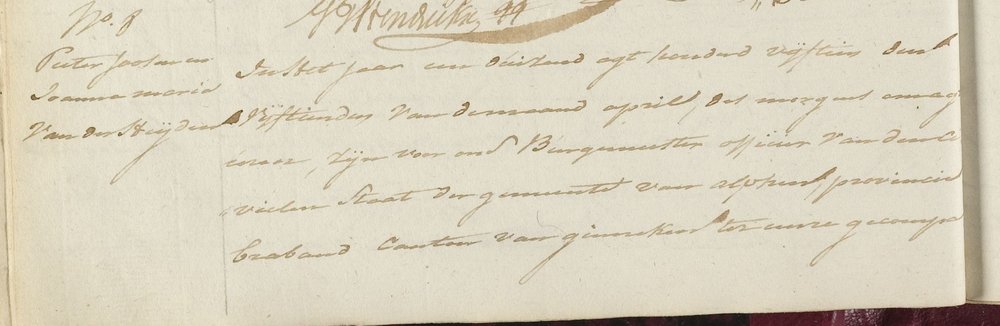 No. 8
Pieter Joosen en
Joanna maria
Van der Heijden
In het jaar een duisend agt honderd vijftien den
Vijftienden Van de maand april, des morgens om agt
uuren, zijn voor ons Burgemeester officier Van den Ci
vielen Staat der gemeente van alphen, provincie
braband Canton van ginneken ter eenre gecompa